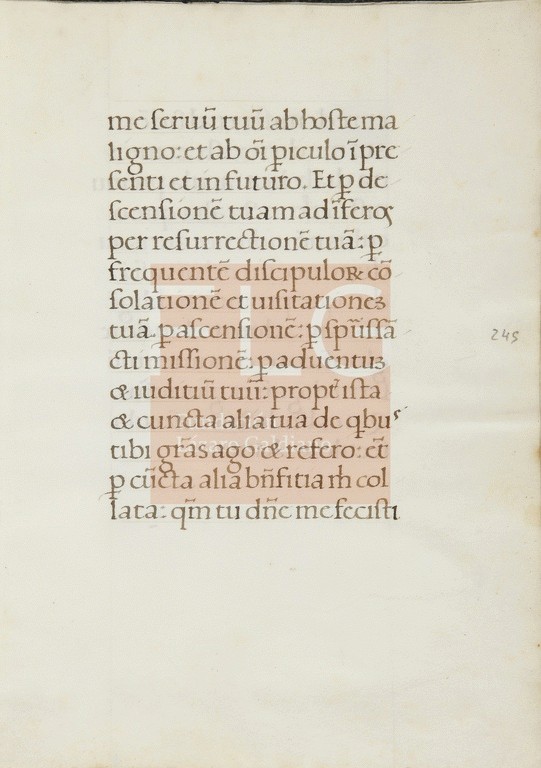 me seruū tuū ab hoste ma
ligno: et ab oī ꝑiculo īpre
senti et in futuro. Et ꝑ de
scensionē tuam ad īferoꝝ
per resurrectionē tuā: ꝑ
frequentē discipuloꝝ cō
solationē et uisitationeꝫ
tuā. ꝑ ascensionē: ꝑ spūssā
cti missionē: ꝑ aduentuꝫ
& iuditiū tuū: propt̄ ista
& cuncta alia tua de qbuꝰ
tibi grās ago & refero: et
ꝑ cūcta alia bn̄fitia m̄ col
lata: qm̄ tu dn̄e me fecisti
245
FLC
Lázaro Galdiano